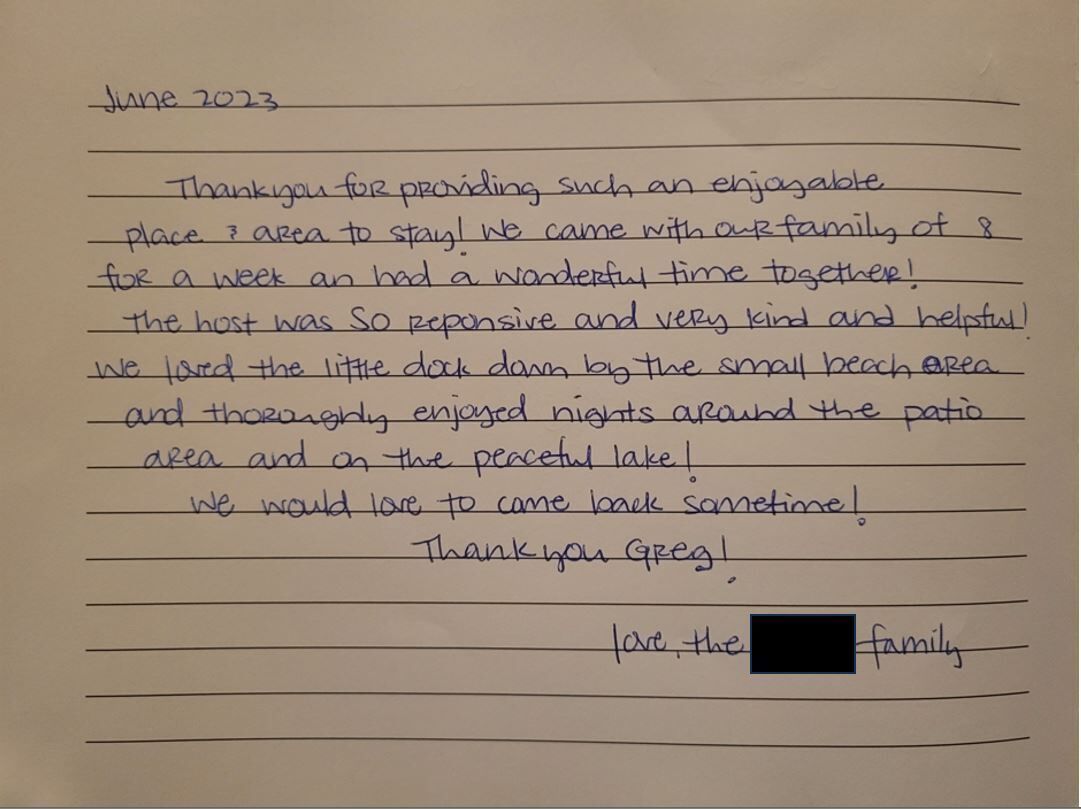 June 2023
Thankyou for providing such an enjoyable
place & area to stay! We came with our family of 8
for a week an had a wonderful time together!
The host was SO reponsive and very kind and helpful!
We loved the little dock down by the small beach area
and thoroughly enjoyed nights around the patio
area and on the peaceful lake!
We would love to come back sometime!
Thank you Greg!
love, the family